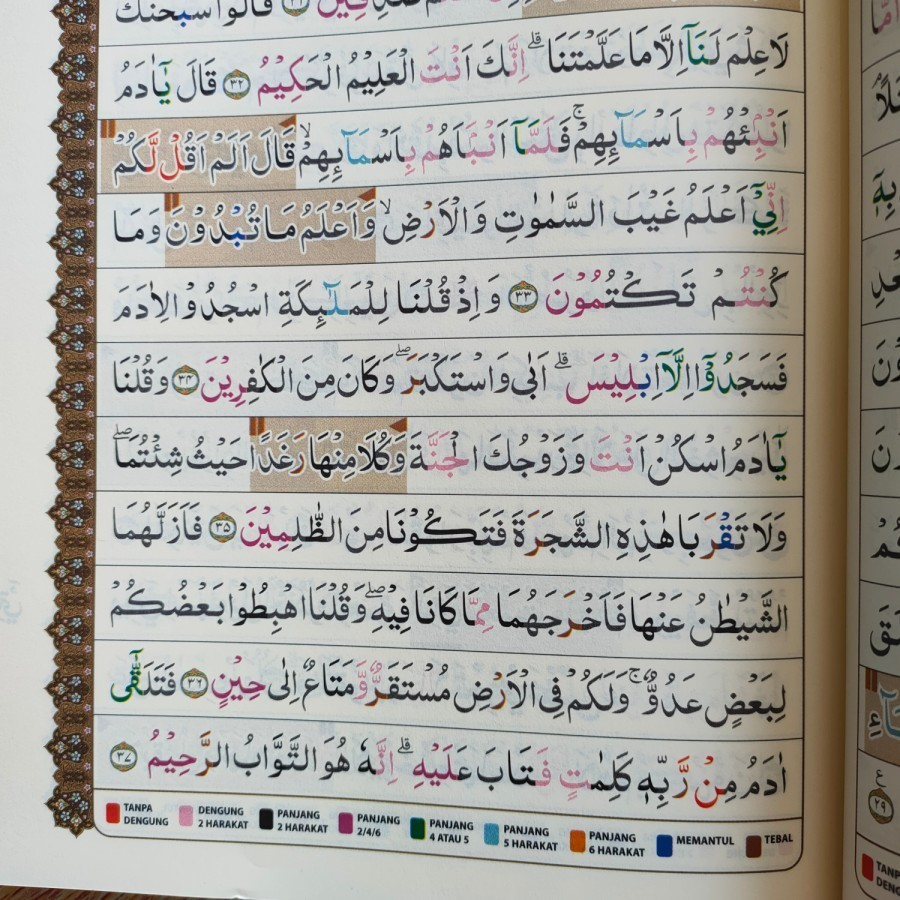 قَالُوْا سُبْحٰنَكَ
لَا عِلْمَ لَنَآ اِلَّا مَا عَلَّمْتَنَا ۗ اِنَّكَ اَنْتَ الْعَلِيْمُ الْحَكِيْمُ ٣٢ قَالَ يٰٓاٰدَمُ
اَنْۢبِئْهُمْ بِاَسْمَاۤىِٕهِمْ ۚ فَلَمَّآ اَنْۢبَاَهُمْ بِاَسْمَاۤىِٕهِمْۙ قَالَ اَلَمْ اَقُلْ لَّكُمْ
اِنِّيْٓ اَعْلَمُ غَيْبَ السَّمٰوٰتِ وَالْاَرْضِۙ وَاَعْلَمُ مَا تُبْدُوْنَ وَمَا
كُنْتُمْ تَكْتُمُوْنَ ٣٣ وَاِذْ قُلْنَا لِلْمَلٰۤىِٕكَةِ اسْجُدُوْا لِاٰدَمَ
فَسَجَدُوْٓا اِلَّآ اِبْلِيْسَۗ اَبٰى وَاسْتَكْبَرَۖ وَكَانَ مِنَ الْكٰفِرِيْنَ ٣٤ وَقُلْنَا
يٰٓاٰدَمُ اسْكُنْ اَنْتَ وَزَوْجُكَ الْجَنَّةَ وَكُلَا مِنْهَا رَغَدًا حَيْثُ شِئْتُمَاۖ
وَلَا تَقْرَبَا هٰذِهِ الشَّجَرَةَ فَتَكُوْنَا مِنَ الظّٰلِمِيْنَ ٣٥ فَاَزَلَّهُمَا
الشَّيْطٰنُ عَنْهَا فَاَخْرَجَهُمَا مِمَّا كَانَا فِيْهِۖ وَقُلْنَا اهْبِطُوْا بَعْضُكُمْ
لِبَعْضٍ عَدُوٌّۚ وَلَكُمْ فِى الْاَرْضِ مُسْتَقَرٌّ وَّمَتَاعٌ اِلٰى حِيْنٍ ٣٦ فَتَلَقّٰٓى
اٰدَمُ مِنْ رَّبِّهٖ كَلِمٰتٍ فَتَابَ عَلَيْهِۗ اِنَّهٗ هُوَ التَّوَّابُ الرَّحِيْمُ ٣٧
TANPA DENGUNG DENGUNG 2 HARAKAT PANJANG 2 HARAKAT PANJANG 2/4/6 PANJANG 4 ATAU 5 PANJANG 5 HARAKAT PANJANG 6 HARAKAT MEMANTUL TEBAL
ع
٢٩